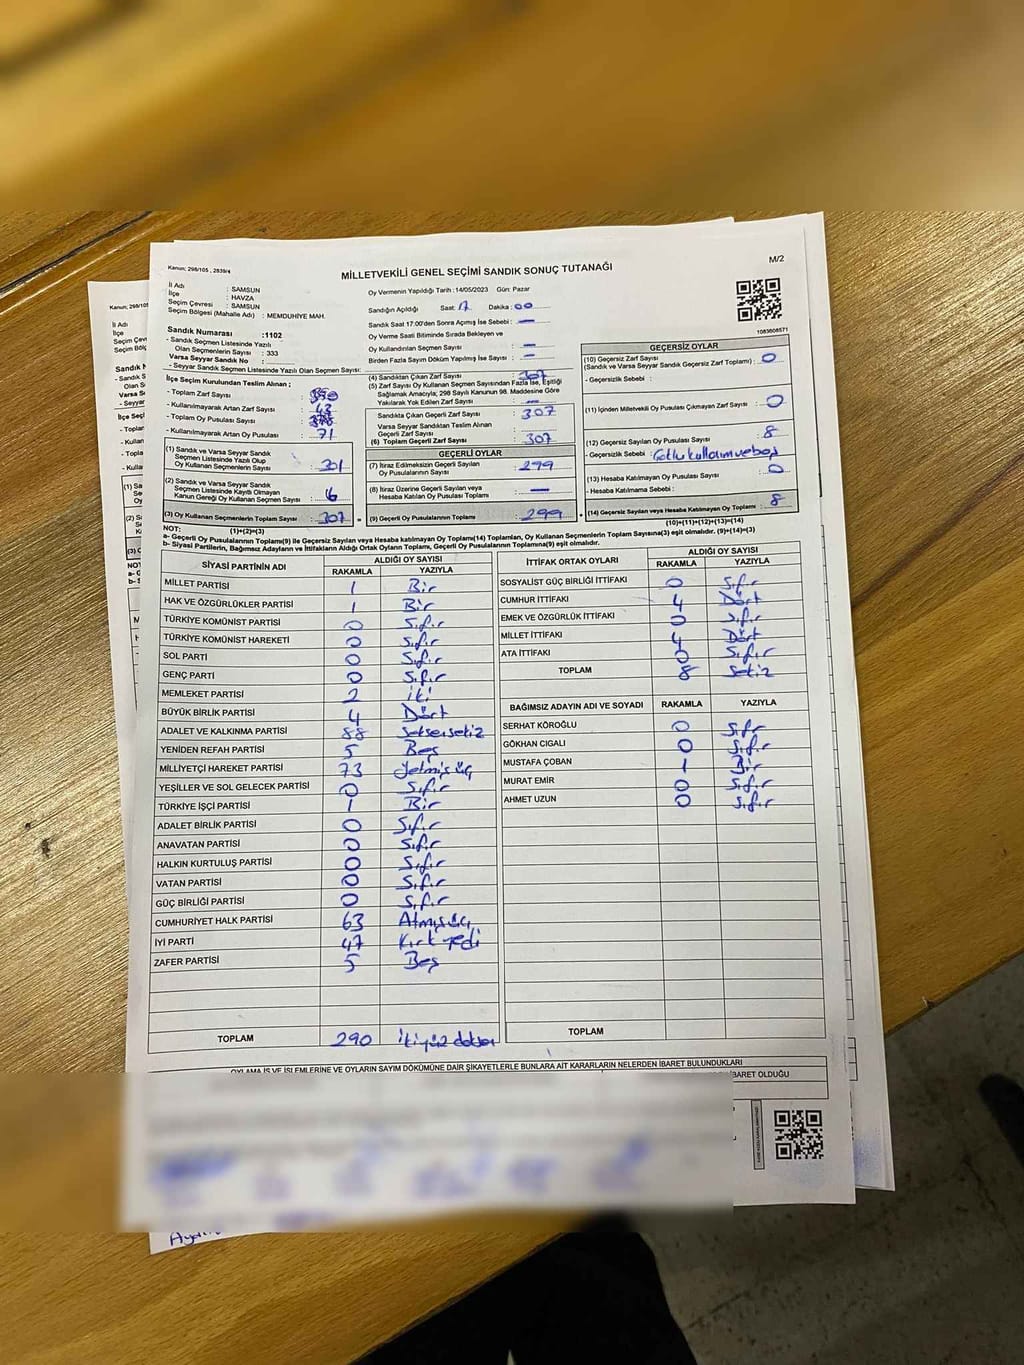 Kanun; 298/105 , 2839/4
M/2
MİLLETVEKİLİ GENEL SEÇİMİ SANDIK SONUÇ TUTANAĞI
İl Adı : SAMSUN
İlçe : HAVZA
Seçim Çevresi : SAMSUN
Seçim Bölgesi (Mahalle Adı) : MEMDUHİYE MAH.
Sandık Numarası :1102
- Sandık Seçmen Listesinde Yazılı
Olan Seçmenlerin Sayısı : 333
Varsa Seyyar Sandık No :
- Seyyar Sandık Seçmen Listesinde Yazılı Olan Seçmen Sayısı:
İlçe Seçim Kurulundan Teslim Alınan ;
- Toplam Zarf Sayısı : 350
- Kullanılmayarak Artan Zarf Sayısı : 43
- Toplam Oy Pusulası Sayısı :
- Kullanılmayarak Artan Oy Pusulası : 71
(1) Sandık ve Varsa Seyyar Sandık
Seçmen Listesinde Yazılı Olup
Oy Kullanan Seçmenlerin Sayısı : 301
(2) Sandık ve Varsa Seyyar Sandık
Seçmen Listesinde Kayıtlı Olmayan
Kanun Gereği Oy Kullanan Seçmen Sayısı : 6
(3) Oy Kullanan Seçmenlerin Toplam Sayısı : 307
(1)+(2)=(3)
Oy Vermenin Yapıldığı Tarih : 14/05/2023 Gün: Pazar
Sandığın Açıldığı Saat: 17 Dakika : 00
Sandık Saat 17:00'den Sonra Açılmış İse Sebebi : —
Oy Verme Saati Bitiminde Sırada Bekleyen ve
Oy Kullandırılan Seçmen Sayısı : —
Birden Fazla Sayım Döküm Yapılmış İse Sayısı : —
(4) Sandıktan Çıkan Zarf Sayısı : 307
(5) Zarf Sayısı Oy Kullanan Seçmen Sayısından Fazla İse, Eşitliği
Sağlamak Amacıyla; 298 Sayılı Kanunun 98. Maddesine Göre
Yakılarak Yok Edilen Zarf Sayısı : —
Sandıkta Çıkan Geçerli Zarf Sayısı : 307
Varsa Seyyar Sandıktan Teslim Alınan
Geçerli Zarf Sayısı :
(6) Toplam Geçerli Zarf Sayısı : 307
GEÇERLİ OYLAR
(7) İtiraz Edilmeksizin Geçerli Sayılan
Oy Pusulalarının Sayısı : 299
(8) İtiraz Üzerine Geçerli Sayılan veya
Hesaba Katılan Oy Pusulası Toplamı : —
(9) Geçerli Oy Pusulalarının Toplamı : 299
1083608571
GEÇERSİZ OYLAR
(10) Geçersiz Zarf Sayısı : 0
(Sandık ve Varsa Seyyar Sandık Geçersiz Zarf Toplamı)
- Geçersizlik Sebebi :
(11) İçinden Milletvekili Oy Pusulası Çıkmayan Zarf Sayısı : 0
(12) Geçersiz Sayılan Oy Pusulası Sayısı : 8
- Geçersizlik Sebebi:
(13) Hesaba Katılmayan Oy Pusulası Sayısı : 0
- Hesaba Katılmama Sebebi :
(14) Geçersiz Sayılan veya Hesaba Katılmayan Oy Toplamı : 8
(10)+(11)+(12)+(13)=(14)
NOT:
a- Geçerli Oy Pusulaları Toplamı(9) ile Geçersiz Sayılan veya Hesaba katılmayan Oy Toplamı(14) Toplamları, Oy Kullanan Seçmenlerin Toplam Sayısına(3) eşit olmalıdır. (9)+(14)=(3)
b- Siyasi Partilerin, Bağımsız Adayların ve İttifakların Aldığı Ortak Oyların Toplamı, Geçerli Oy Pusulalarının Toplamına(9) eşit olmalıdır.
SİYASİ PARTİNİN ADI ALDIĞI OY SAYISI
RAKAMLA YAZIYLA
MİLLET PARTİSİ 1 Bir
HAK VE ÖZGÜRLÜKLER PARTİSİ 1 Bir
TÜRKİYE KOMÜNİST PARTİSİ 0 Sıfır
TÜRKİYE KOMÜNİST HAREKETİ 0 Sıfır
SOL PARTİ 0 Sıfır
GENÇ PARTİ 0 Sıfır
MEMLEKET PARTİSİ 2 iki
BÜYÜK BİRLİK PARTİSİ 4 Dört
ADALET VE KALKINMA PARTİSİ 88 Seksensekiz
YENİDEN REFAH PARTİSİ 5 Beş
MİLLİYETÇİ HAREKET PARTİSİ 73 Yetmişüç
YEŞİLLER VE SOL GELECEK PARTİSİ 0 Sıfır
TÜRKİYE İŞÇİ PARTİSİ 1 Bir
ADALET BİRLİK PARTİSİ 0 Sıfır
ANAVATAN PARTİSİ 0 Sıfır
HALKIN KURTULUŞ PARTİSİ 0 Sıfır
VATAN PARTİSİ 0 Sıfır
GÜÇ BİRLİĞİ PARTİSİ 0 Sıfır
CUMHURİYET HALK PARTİSİ 63 Atmışüç
İYİ PARTİ 47 Kırk yedi
ZAFER PARTİSİ 5 Beş
TOPLAM 290 ikiyüz doksan
İTTİFAK ORTAK OYLARI ALDIĞI OY SAYISI
RAKAMLA YAZIYLA
SOSYALİST GÜÇ BİRLİĞİ İTTİFAKI 0 Sıfır
CUMHUR İTTİFAKI 4 Dört
EMEK VE ÖZGÜRLÜK İTTİFAKI 0 Sıfır
MİLLET İTTİFAKI 4 Dört
ATA İTTİFAKI 0 Sıfır
TOPLAM 8 Sekiz
BAĞIMSIZ ADAYIN ADI VE SOYADI RAKAMLA YAZIYLA
SERHAT KÖROĞLU 0 Sıfır
GÖKHAN CIGALI 0 Sıfır
MUSTAFA ÇOBAN 1 Bir
MURAT EMİR 0 Sıfır
AHMET UZUN 0 Sıfır
TOPLAM
OYLAMA İŞ VE İŞLEMLERİNE VE OYLARIN SAYIM DÖKÜMÜNE DAİR ŞİKAYETLERLE BUNLARA AİT KARARLARIN NELERDEN İBARET BULUNDUKLARI
İBARET OLDUĞU